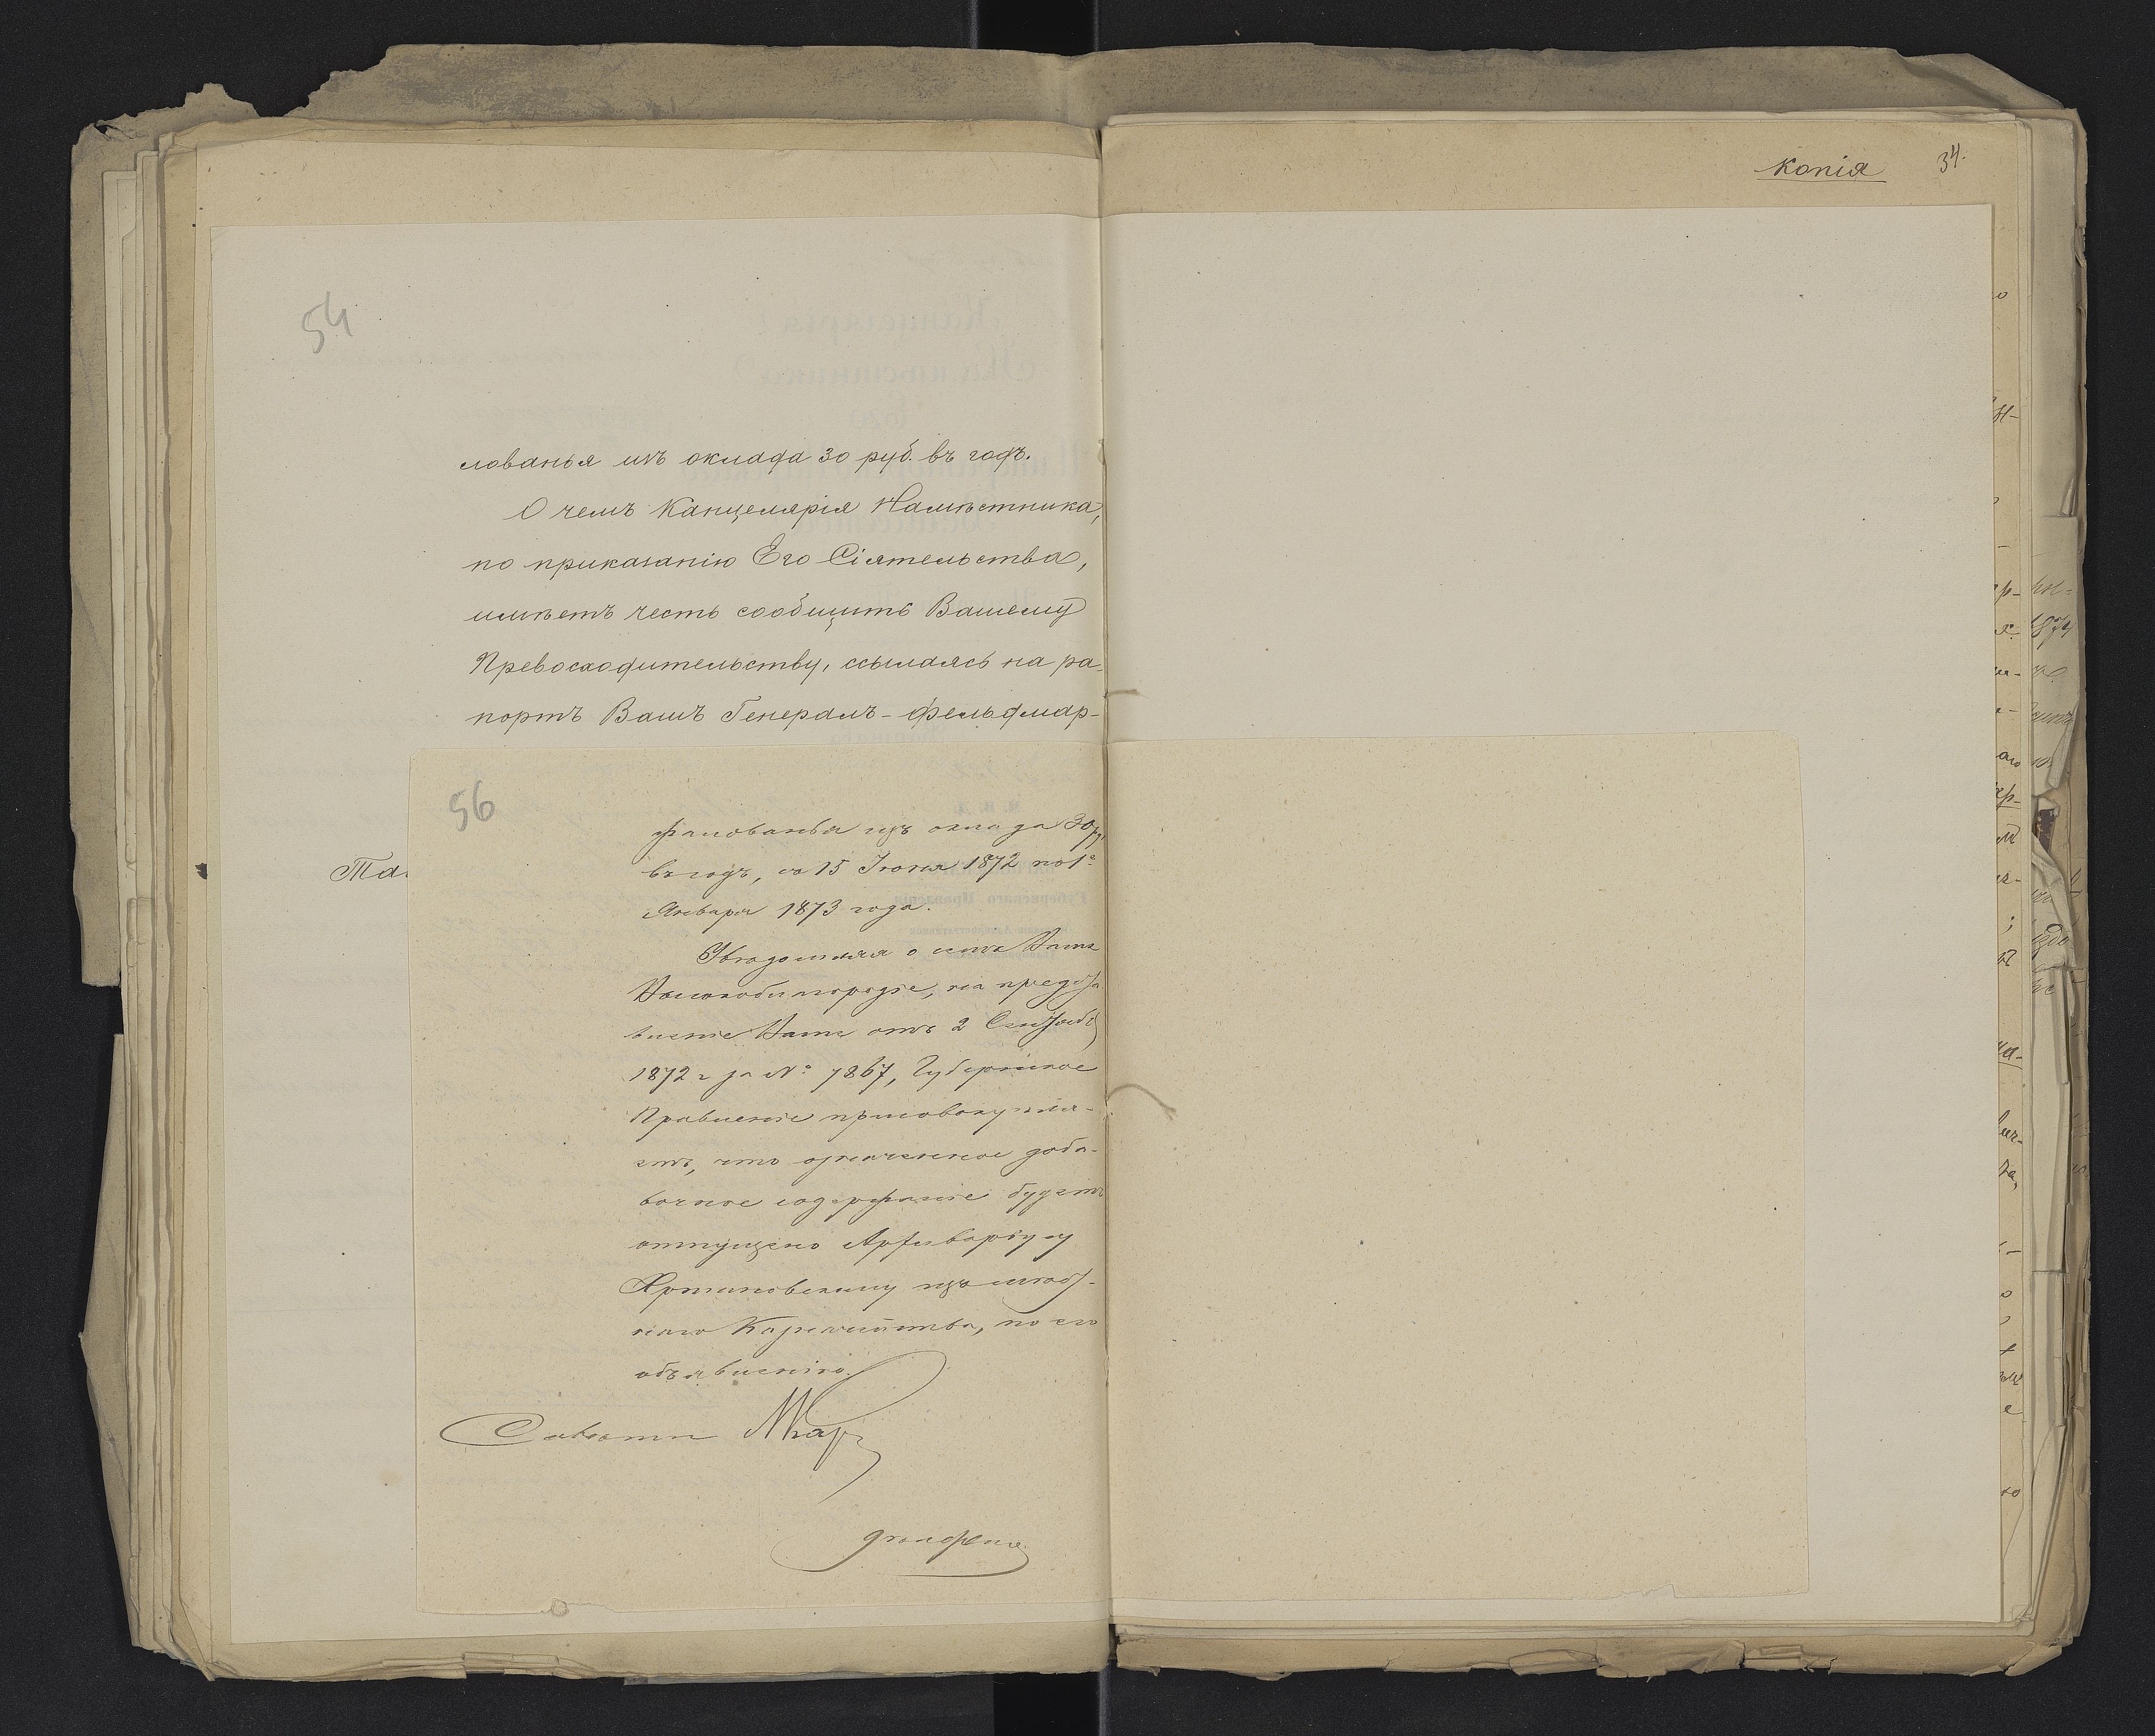 копія 34.
54
лованья изъ оклада 30 руб. въ годъ.
О чемъ Канцелярія Намѣстника,
по приказанію Его Сіятельства,
имѣетъ честь сообщить Вашему
Превосходительству, ссылаясь на ра-
портъ Вашъ Генералъ-Фельдмар-
56
жалованья изъ оклада 30 р.
въ годъ, съ 15 Іюня 1872 по 1е
Января 1873 года.
Увѣдомляя о семъ Ваше
Высокоблагородіе, на предста
вленіе Ваше отъ 2 Сентября
1872 г за № 7867, Губернское
Правленіе присовокупля-
етъ, что означенное доба-
вочное содержаніе будетъ
отпущено Архиваріусу
изъ мѣст-
наго Казначейства, по его
объявленію.
Совѣтникъ